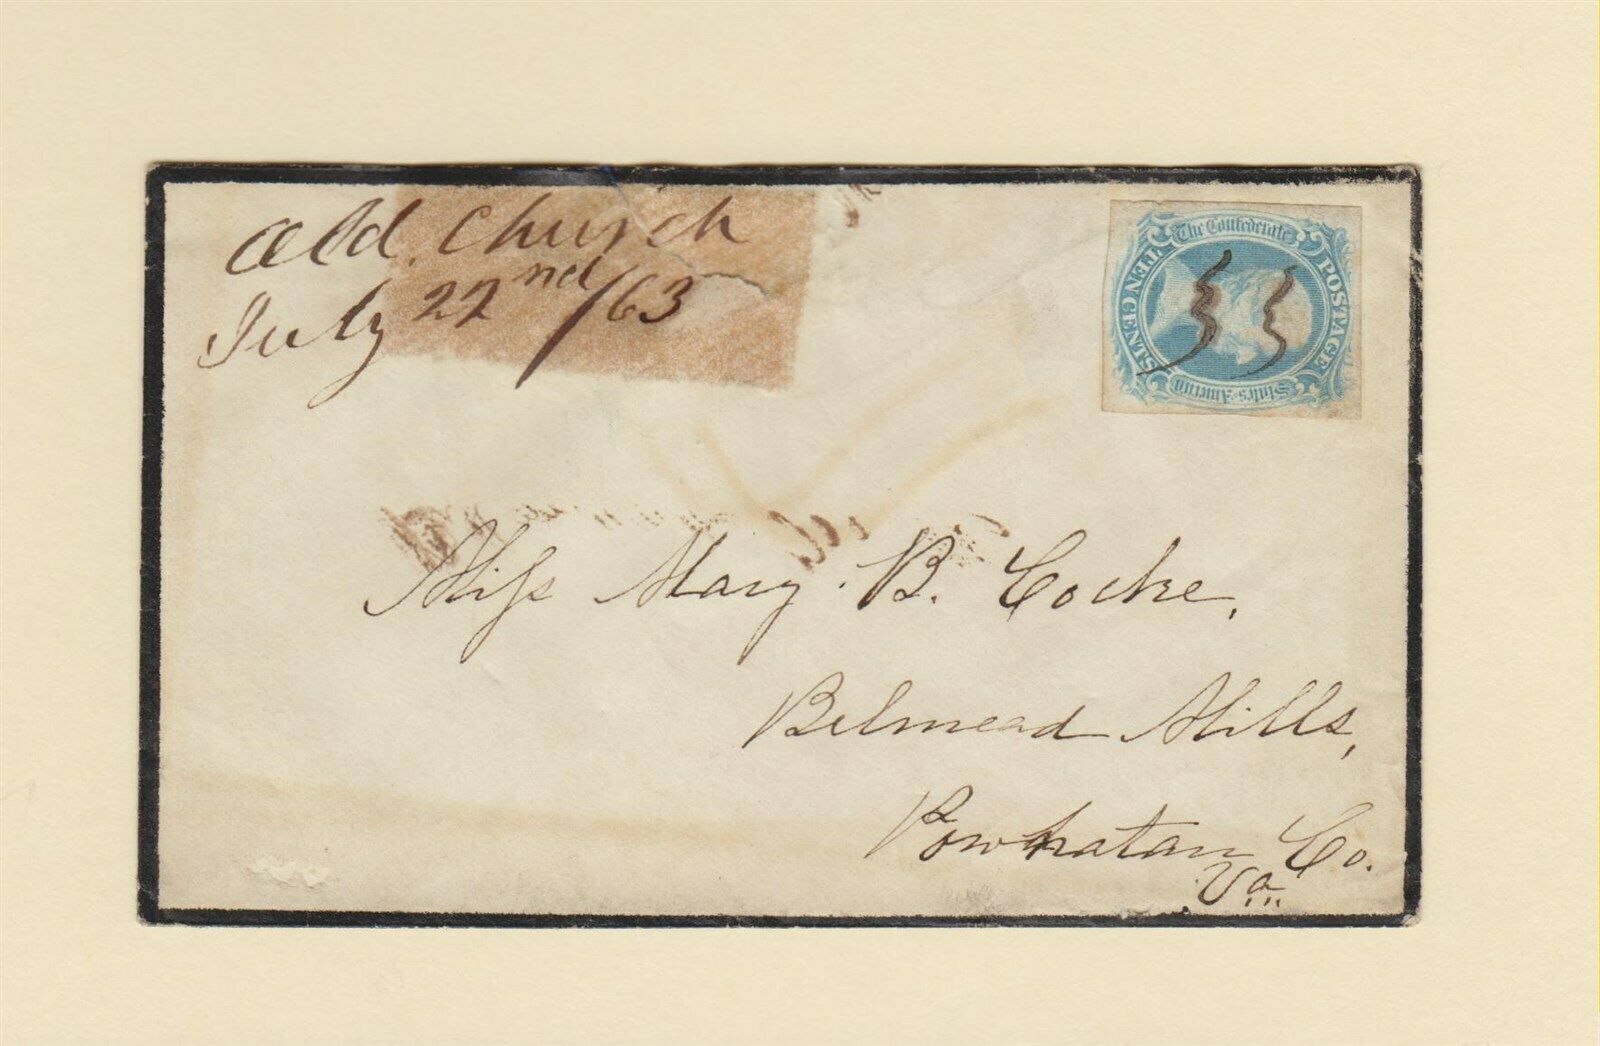 Old Church
July 22nd/63
The Confederate
States of America
POSTAGE
TEN CENTS
Miss Mary B. Cocke,
Belmead Mills,
Powhatan Co.
Va.